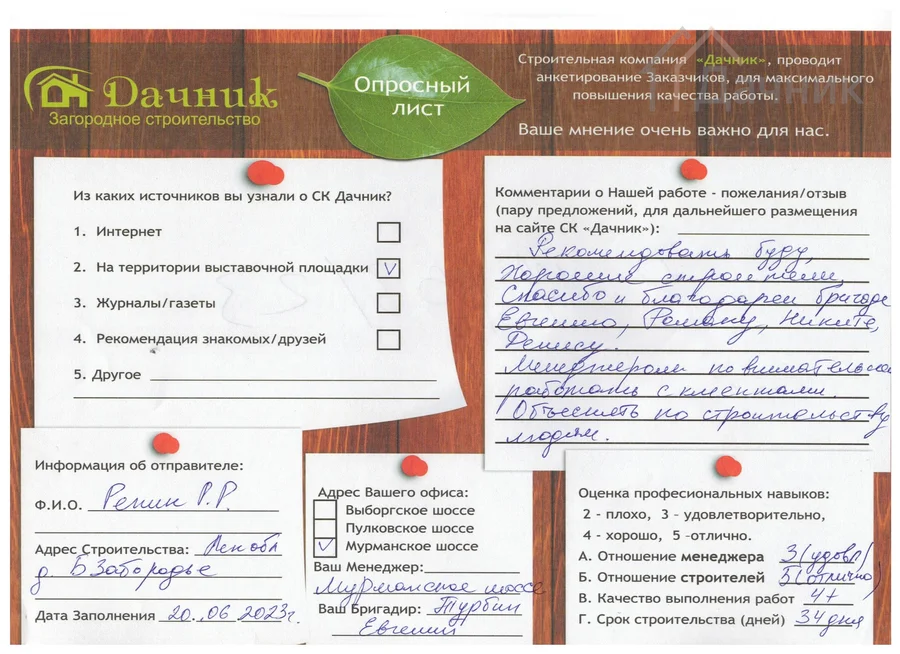 Дачник
Загородное строительство
Опросный
лист
Строительная компания «Дачник», проводит
анкетирование Заказчиков, для максимального
повышения качества работы.
Ваше мнение очень важно для нас.
Из каких источников вы узнали о СК Дачник?
1. Интернет
2. На территории выставочной площадки V
3. Журналы/газеты
4. Рекомендация знакомых/друзей
5. Другое
Комментарии о Нашей работе - пожелания/отзыв
(пару предложений, для дальнейшего размещения
на сайте СК «Дачник»):
Рекомендовать буду,
Хорошие строители,
Спасибо и благодарен бригаде
Евгению, Роману, Никите,
Денису.
Менеджерам повнимательнее
работать с клиентами.
Объяснять по строительству
людям.
Информация об отправителе:
Ф.И.О. Репин Р.Р.
Адрес Строительства: Лен обл
д. Б Забородье
Дата Заполнения 20.06 2023г.
Адрес Вашего офиса:
Выборгское шоссе
Пулковское шоссе
V Мурманское шоссе
Ваш Менеджер:
Мурманское шоссе
Ваш Бригадир: Турбин
Евгений
Оценка професиональных навыков:
2 - плохо, 3 - удовлетворительно,
4 - хорошо, 5 -отлично.
А. Отношение менеджера 3 (удовл)
Б. Отношение строителей 5 (отлично)
В. Качество выполнения работ 4+
Г. Срок строительства (дней) 34 дня